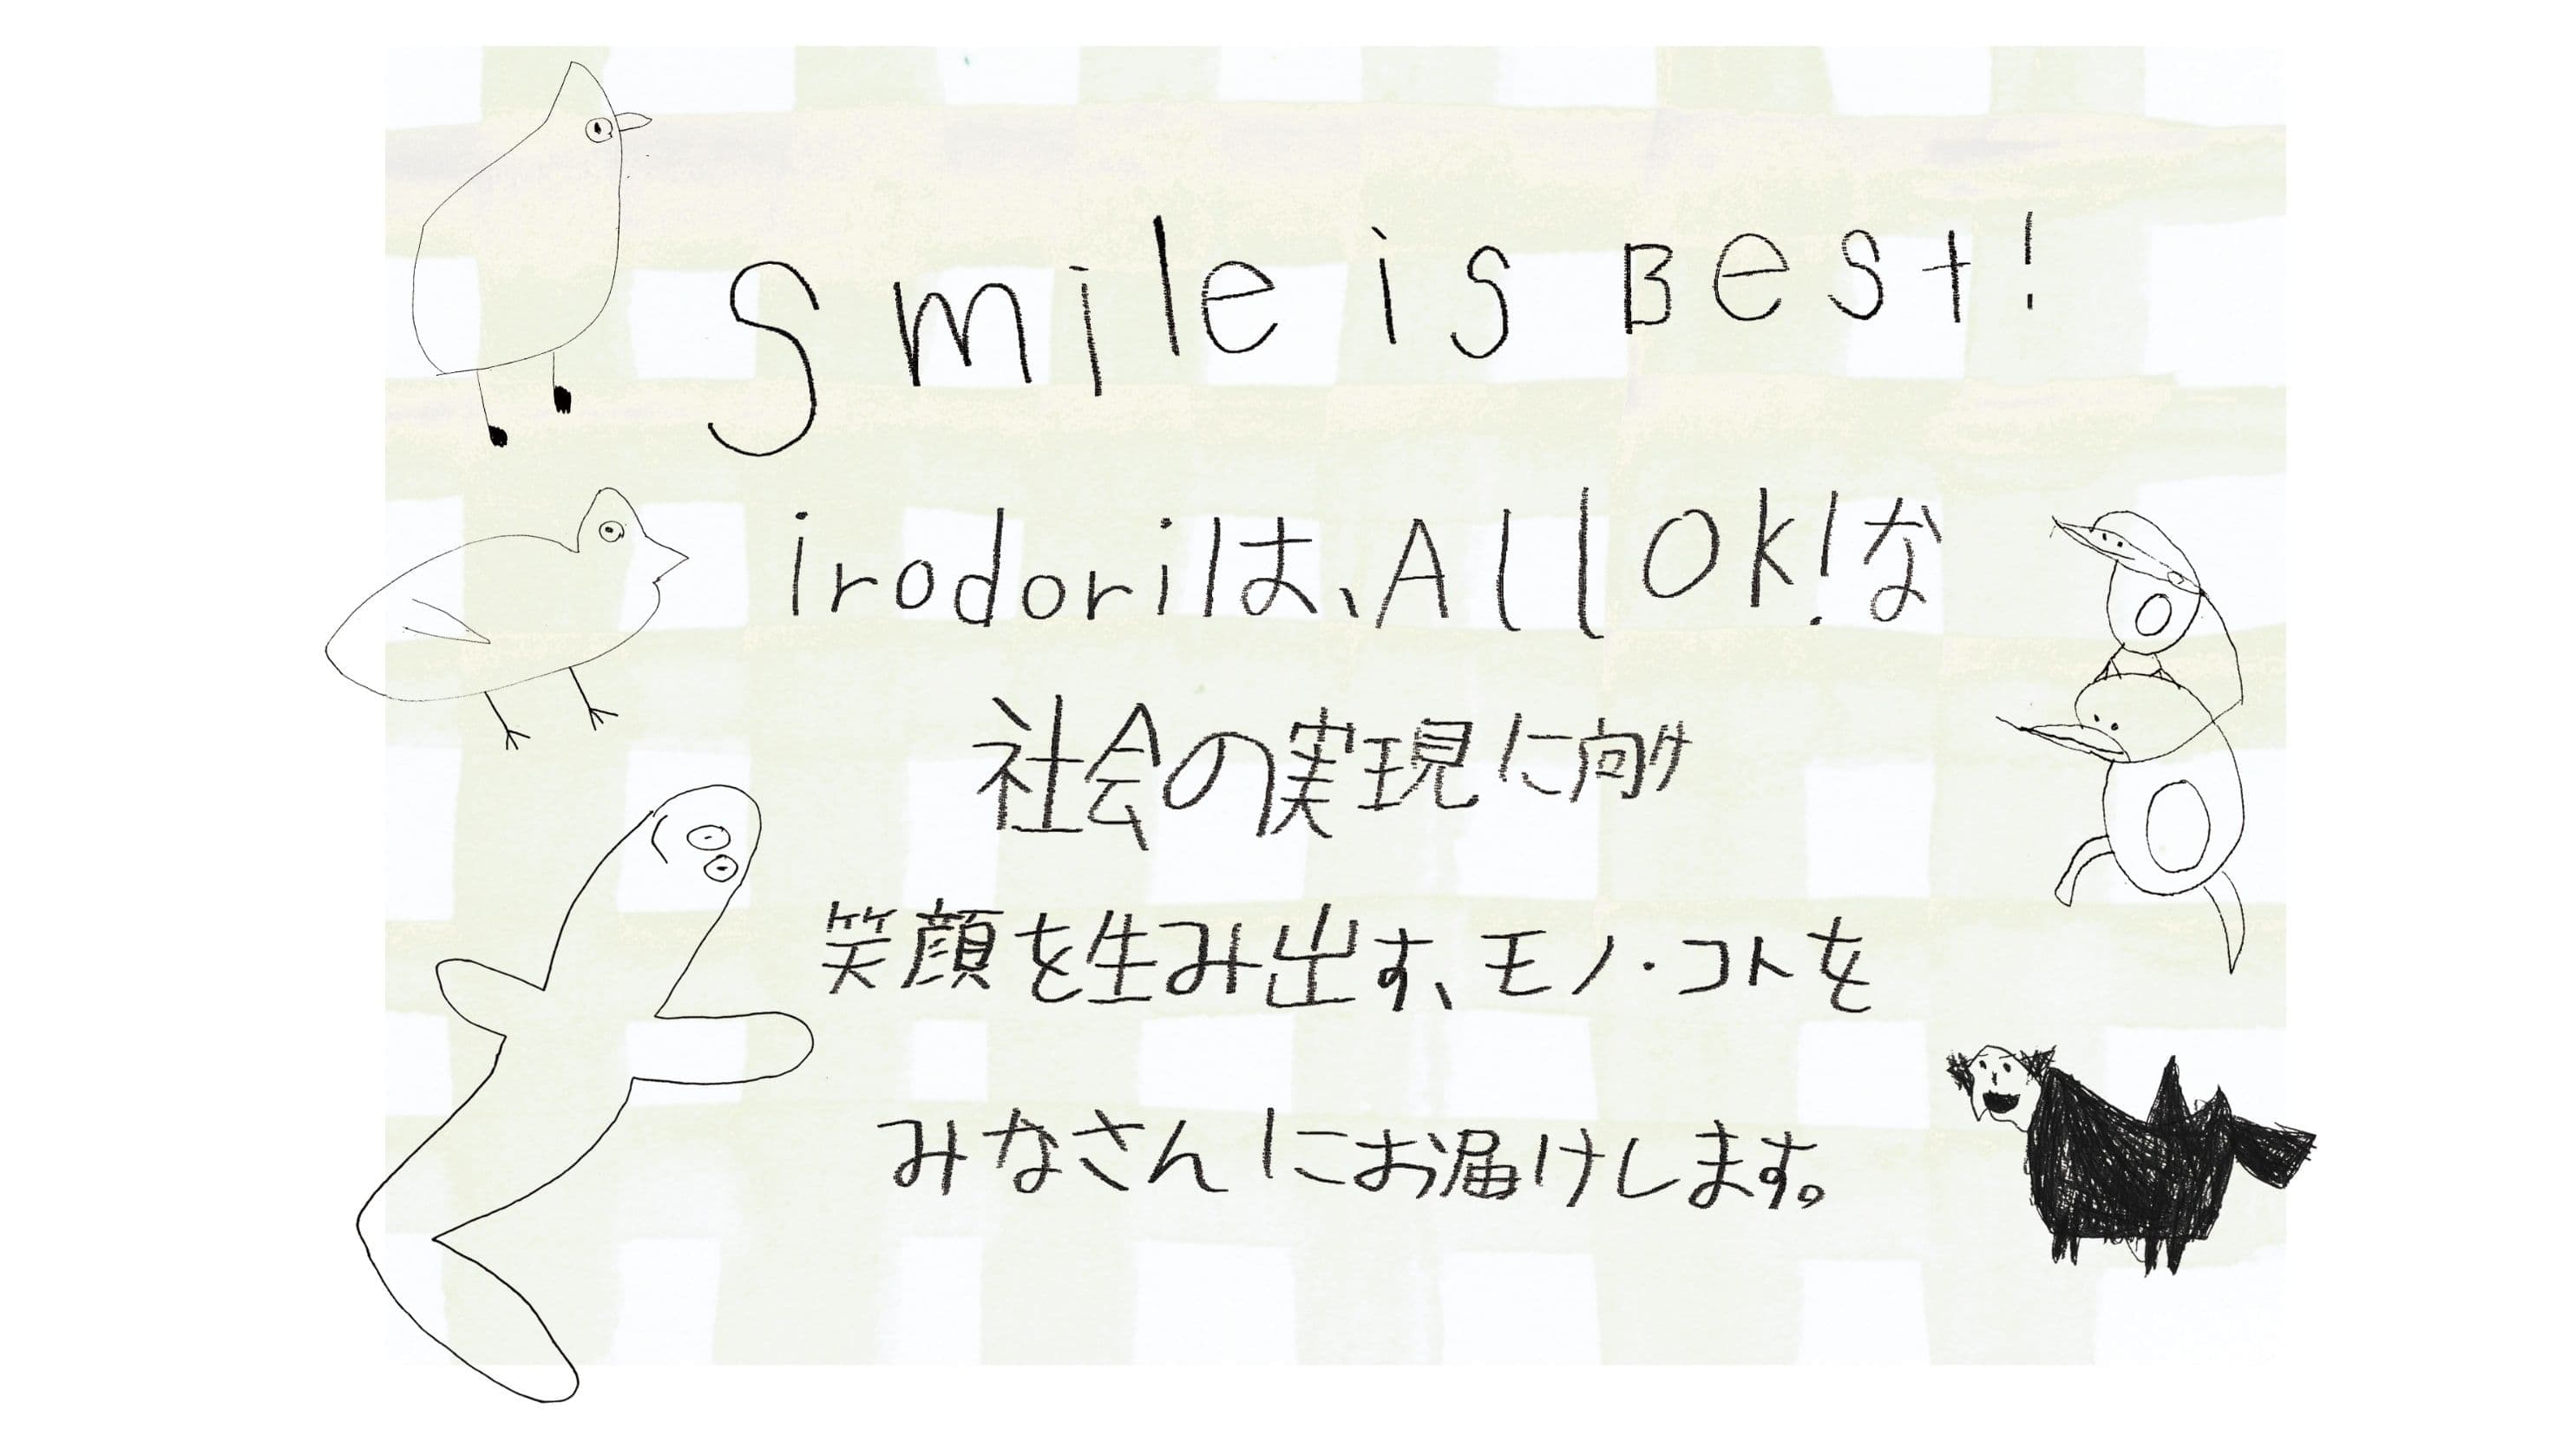 Smile is Best!
irodoriは、All OK!な
社会の実現に向け
笑顔を生み出す、モノ・コトを
みなさんにお届けします。